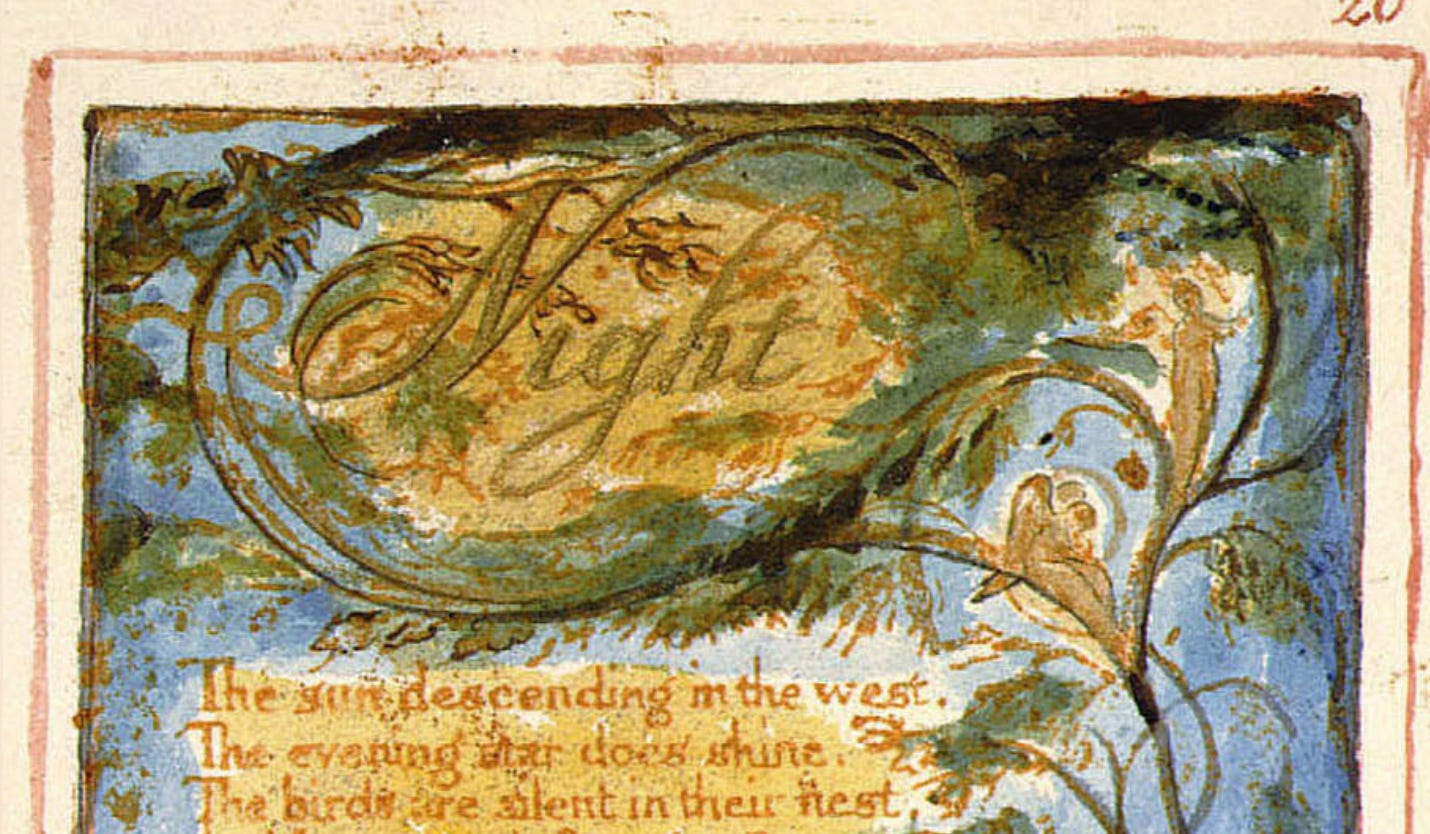 20
Night
The sun descending in the west.
The evening star does shine.
The birds are silent in their nest,